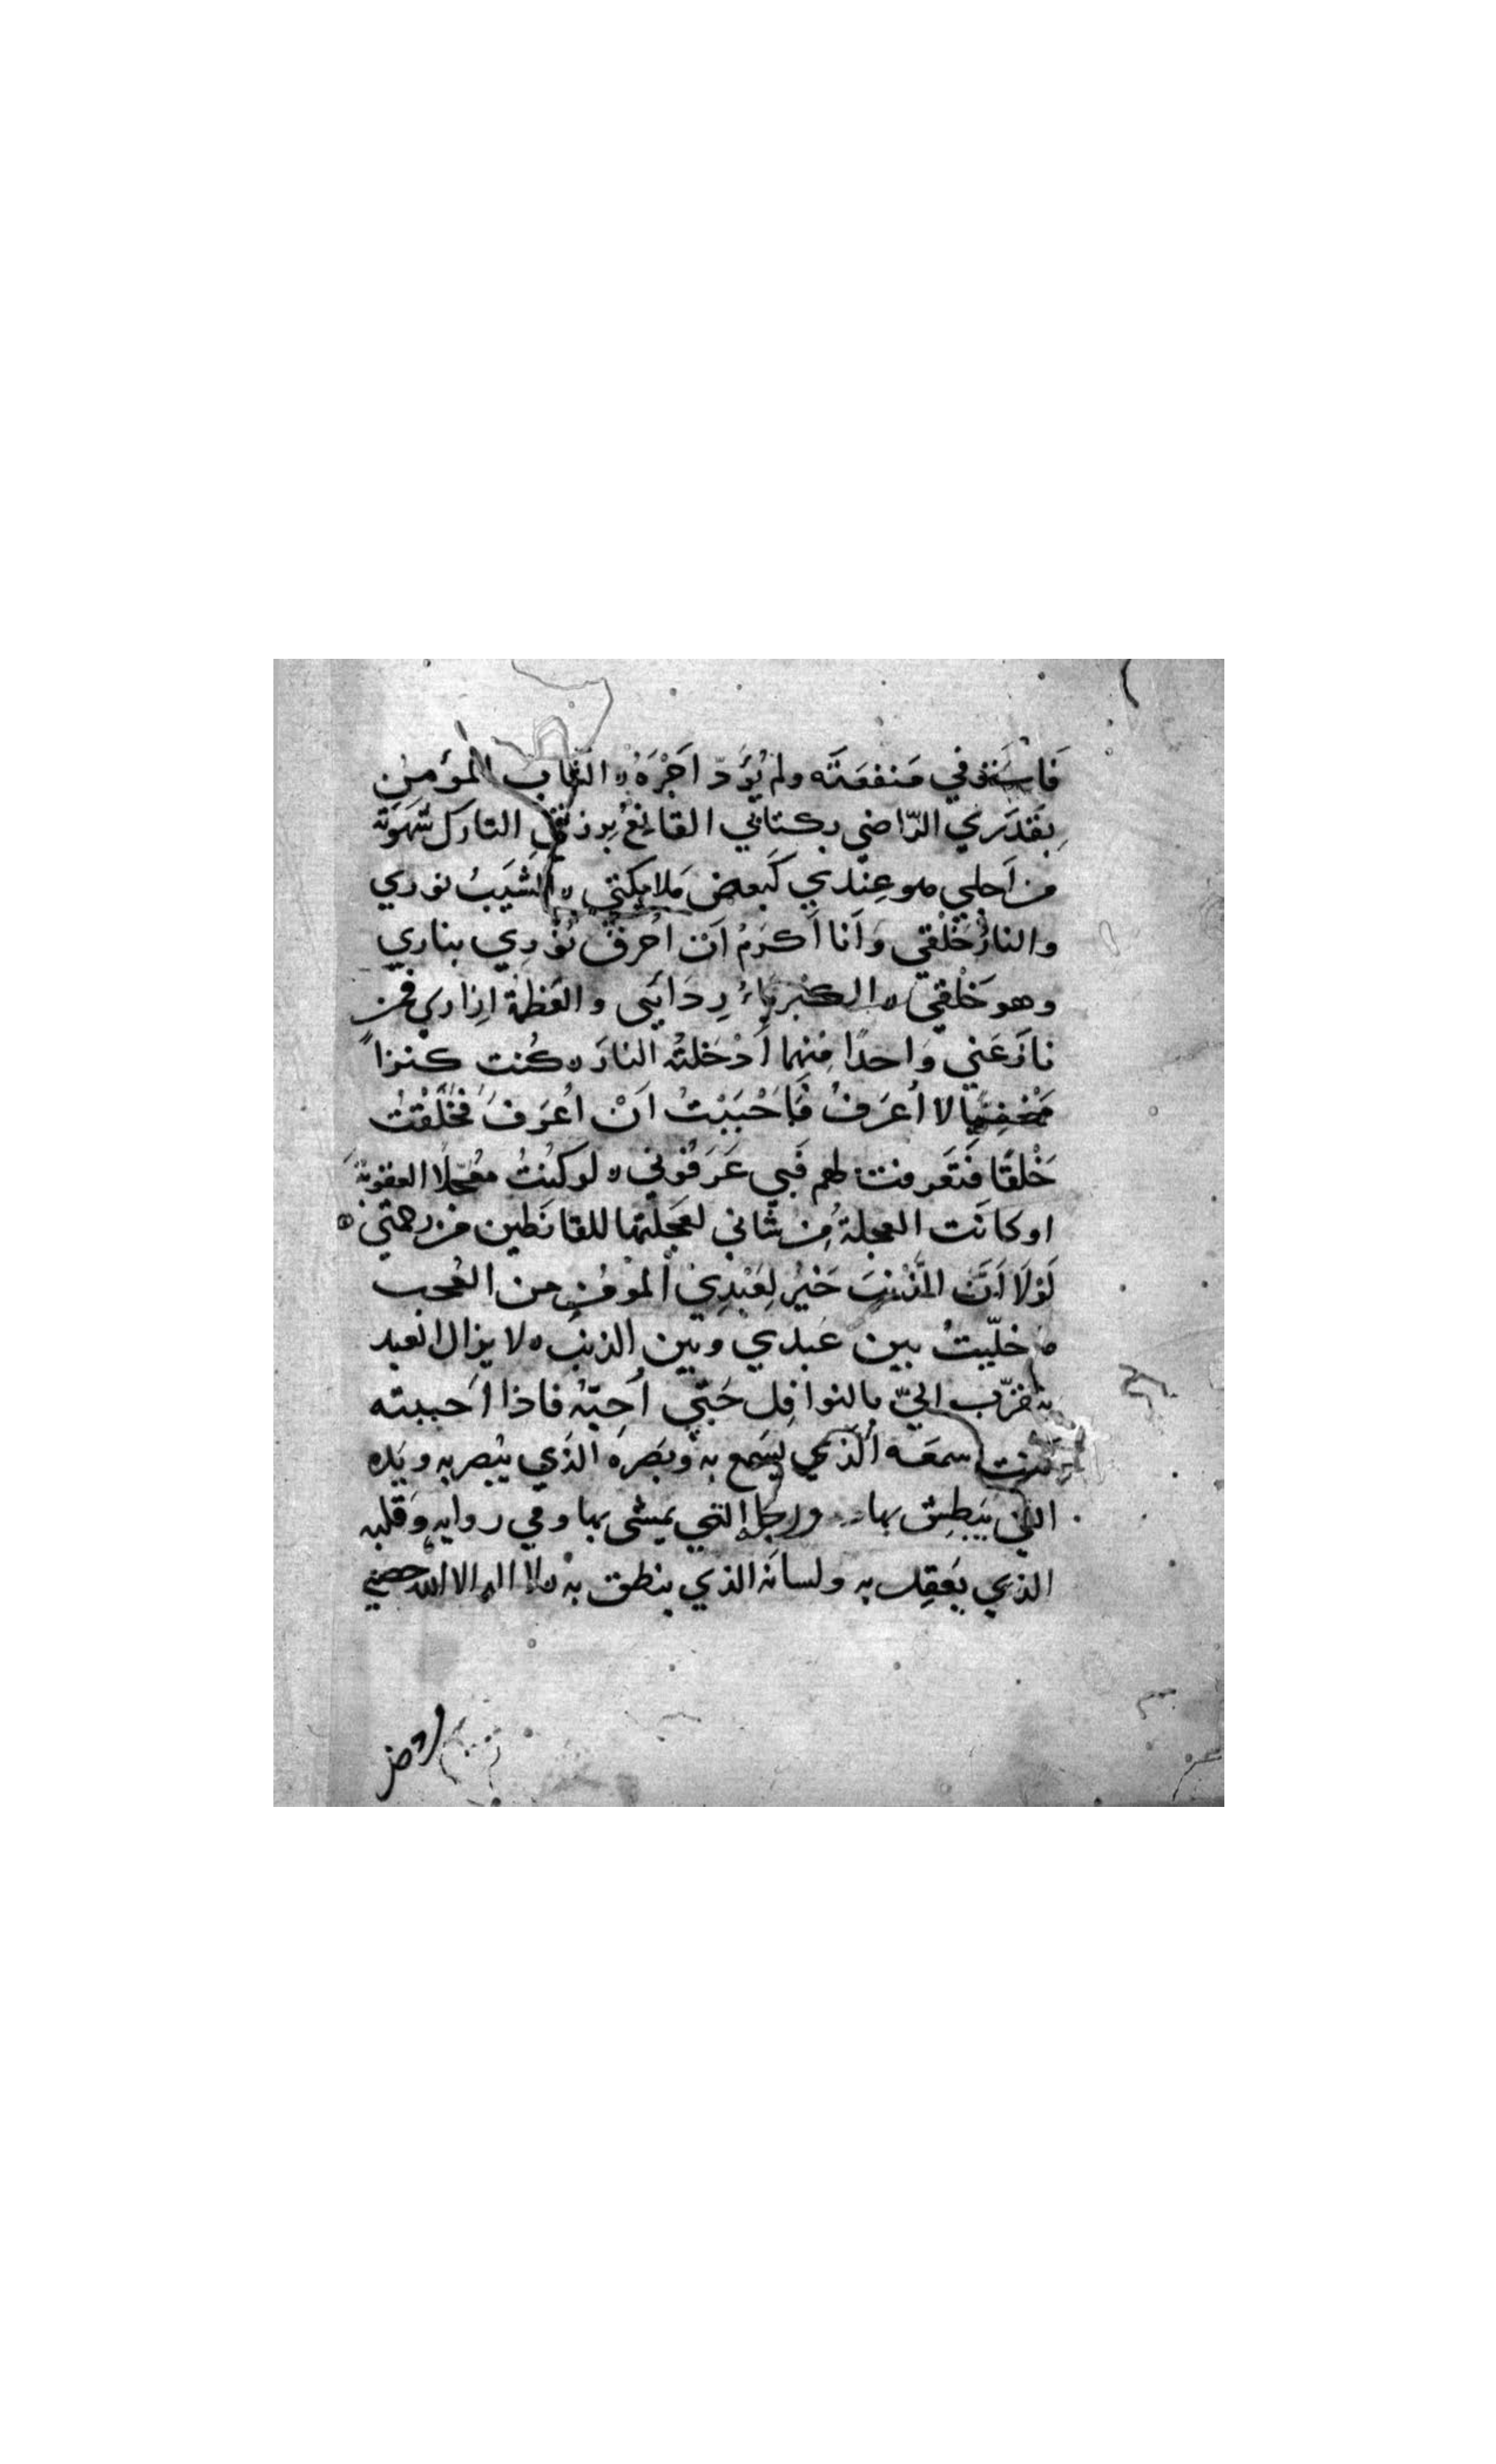 فَاسْتَوفي مَنفعَتَه ولم يُؤَدّ اَجْرَهُ ۞ الشَاب المؤمِن
بِقَدَري الرّاضي بكتابي القانِعُ برزقي التارك شهوَتَهُ
من اَجلي هو عِندي كَبعض مَلايكتي ۞ الشَيبُ نوري
والنارُ خَلْقي وَاَنا اَكرَمُ اَنْ اُحرِقَ نُوْرِي بناري
وهو خَلْقي ۞ الكبرياءُ رِدَائي والعَظَمَة اِزاري فمن
نازَعَني وَاحدًا مِنهما اَدْخَلتُه النارَ ۞ كُنت كنزاً
مَخْفِيّا لا اُعرَفُ فَاَحْبَبْتُ اَنْ اُعرَفَ فخَلَقْتُ
خَلْقًا فتَعَرفت لهم فَبي عَرَفُوني ۞ لو كُنتُ مُعَجّلا العقوبَة
او كانَت العجلةُ مِن شاني لعَجّلتها للقانَطين من رحمتي ۞
لَوْلَا اَنّ الذَنْبَ خَيْرُ لِعَبْدِي المُومِن من العُجب
ما خلّيتُ بين عَبدي وبين الذنبِ ۞ لا يزال العبد
يتقرّب اليّ بالنوافِل حَتي اُحِبّهُ فاذا اَحببته
كنت سمعَه الَذي يسمع به وبَصَرهَ الذَي يُبصر به ويَده
التي يَبطِش بها ورجله التي يمشى بها وفي روايهٍ وَقلبه
الذي يَعقِل به ولسانَه الذي ينطق به ۞ لا اله الا الله حصني